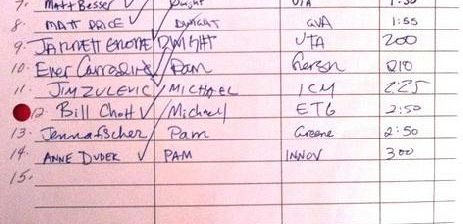 7. Matt Besser Dwight UTA
8. MATT PRICE DWIGHT GVA 1:55
9. JARRETT GROTE DWIGHT UTA 200
10. Ever Carradine Pam Gersh 210
11. JIM ZULEVIC MICHAEL ICM 225
12 Bill Chott Michael ETG 2:50
13. Jenna fischer Pam Greene 2:50
14. ANNE DUDEK PAM INNOV 300
15.